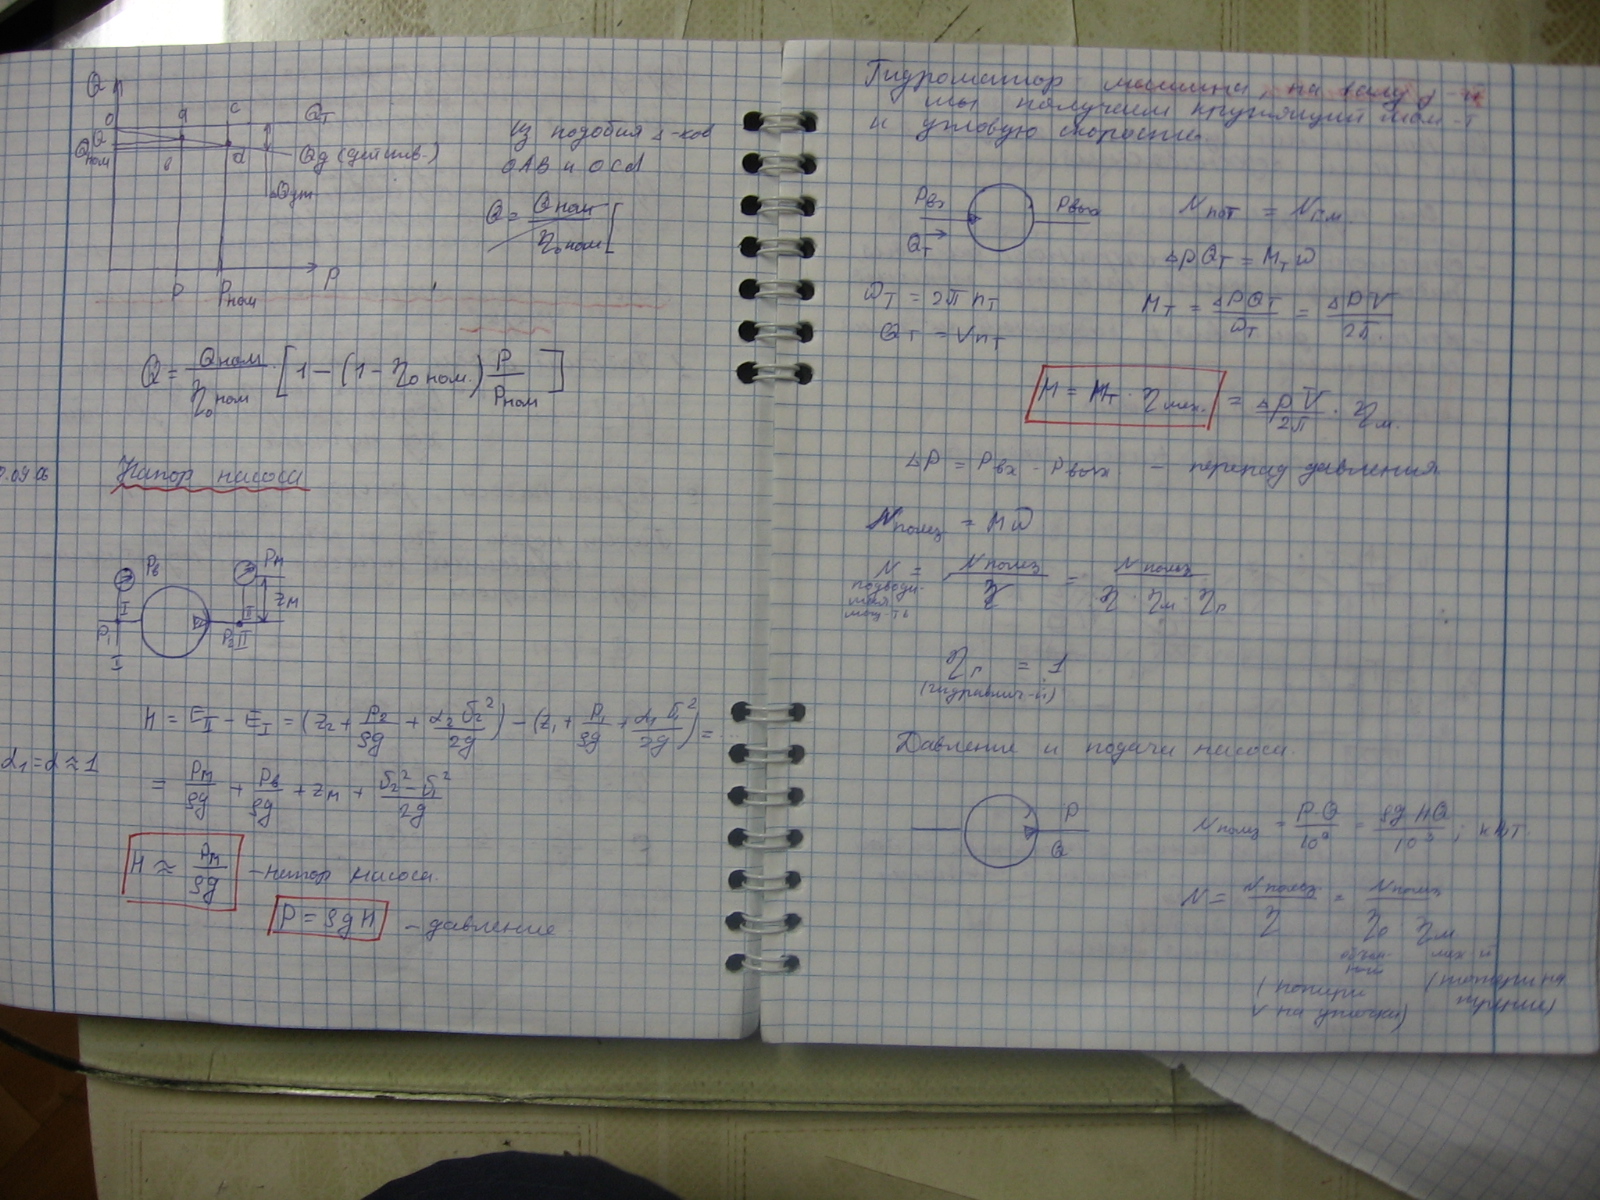 Q
O a c Qт
Q
Qном
b d Qд (действ.)
ΔQут
P Pном P
Из подобия Δ-ков
OAB и OCd
Q = Qном / η₀ном [
Q = Qном / η₀ном · [1 − (1 − η₀ном.) P / Pном]
Напор насоса
Pв Pм
I II zм
P₁ P₂ II
I
H = E_II − E_I = (z₂ + P₂/ρg + α₂ v₂²/2g) − (z₁ + P₁/ρg + α₁ v₁²/2g) =
α₁ = α ≈ 1
= Pм/ρg + Pв/ρg + zм + (v₂² − v₁²)/2g
H ≈ Pм/ρg – напор насоса.
P = ρgH – давление
Гидромотор машина, на валу
мы получаем крутящий мом-т
и угловую скорость.
Pвх Pвых
Qт
Nпот = Nгм
ΔpQт = Mт ω
ωт = 2π nт
Qт = Vnт
Mт = ΔPQт / ωт = ΔPV / 2π.
M = Mт · ηмех. = ΔpV / 2π · ηм.
ΔP = Pвх − Pвых – перепад давления
Nполез = Mω
N = Nполез / η = Nполез / η · ηм · ηг
подводи-
мая
мощ-ть
ηг = 1
(гидравлич-й)
Давление и подача насоса.
P
Q
Nполез = P·Q / 10³ = ρgHQ / 10³ ; кВт.
N = Nполез / η = Nполез / η₀ ηм
объем-
ный
мех-й
(потери
V на утечки)
(потери на
трение)